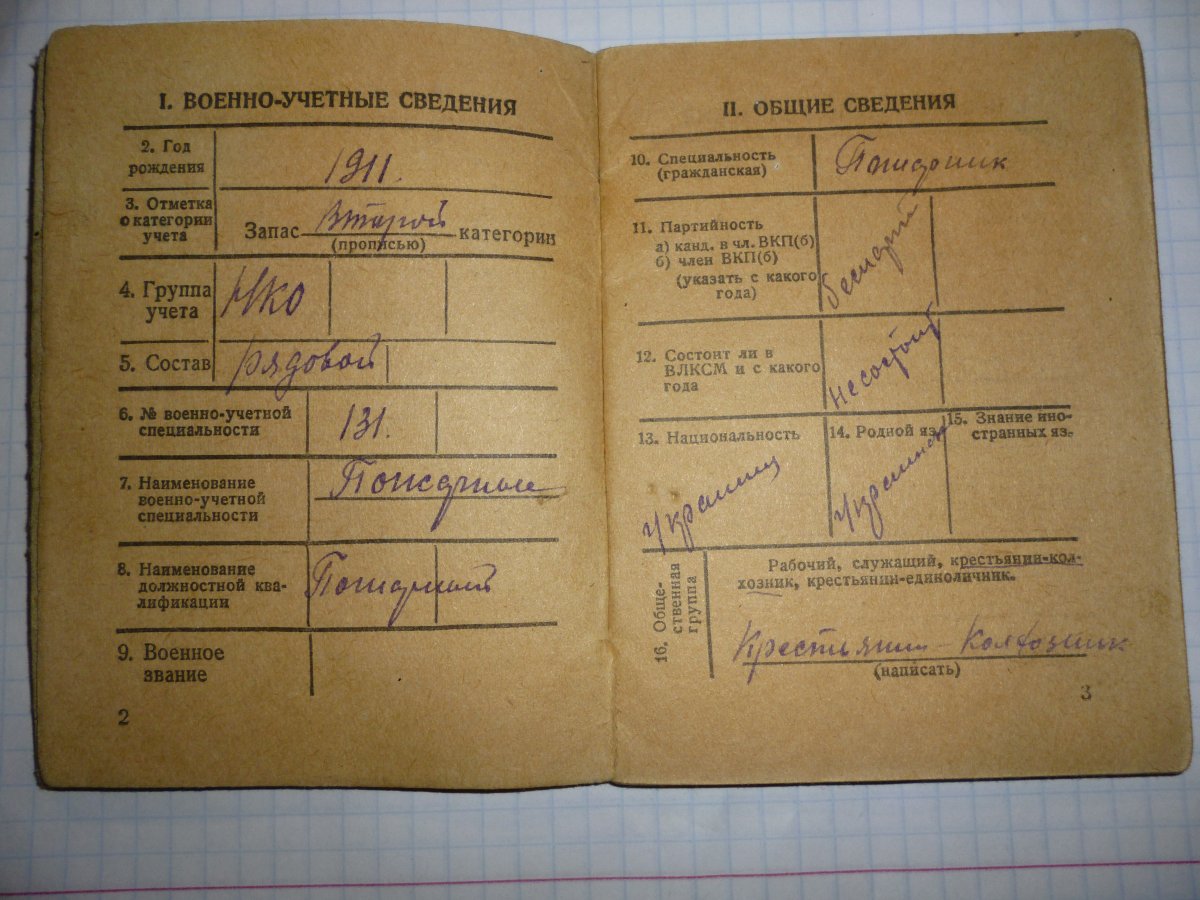 I. ВОЕННО-УЧЕТНЫЕ СВЕДЕНИЯ
2. Год
рождения
1911.
3. Отметка
о категории
учета
Запас Второй категории
(прописью)
4. Группа
учета
НКО
5. Состав
рядовой
6. № военно-учетной
специальности
131.
7. Наименование
военно-учетной
специальности
Пожарный
8. Наименование
должностной ква-
лификации
Пожарный
9. Военное
звание
2
II. ОБЩИЕ СВЕДЕНИЯ
10. Специальность
(гражданская)
Пожарник
11. Партийность
а) канд. в чл. ВКП(б)
б) член ВКП(б)
(указать с какого
года)
12. Состоит ли в
ВЛКСМ и с какого
года
не состоит
13. Национальность
Украинец
14. Родной яз.
15. Знание ино-
странных яз.
16. Обще-
ственная
группа
Рабочий, служащий, крестьянин-кол-
хозник, крестьянин-единоличник.
Крестьянин-Колхозник
(написать)
3